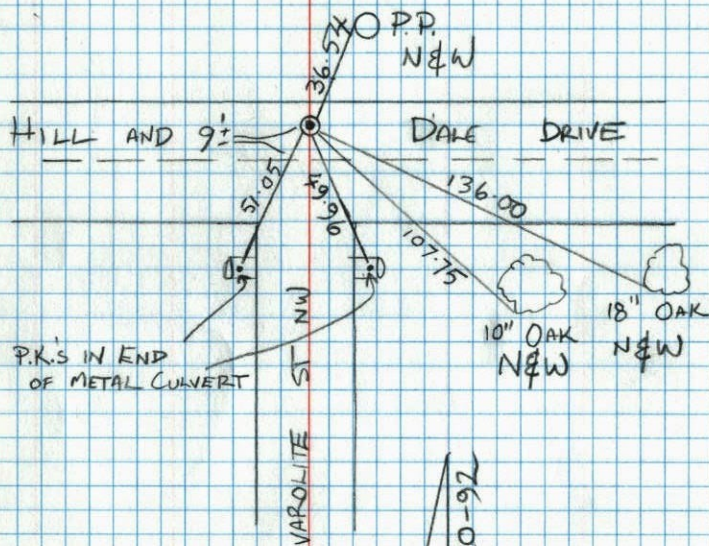 36.54
P.P.
N&W
HILL AND 9'± DALE DRIVE
51.05
49.96
136.00
107.75
10" OAK
N&W
18" OAK
N&W
P.K.'S IN END
OF METAL CULVERT
VAROLITE ST NW
0-92